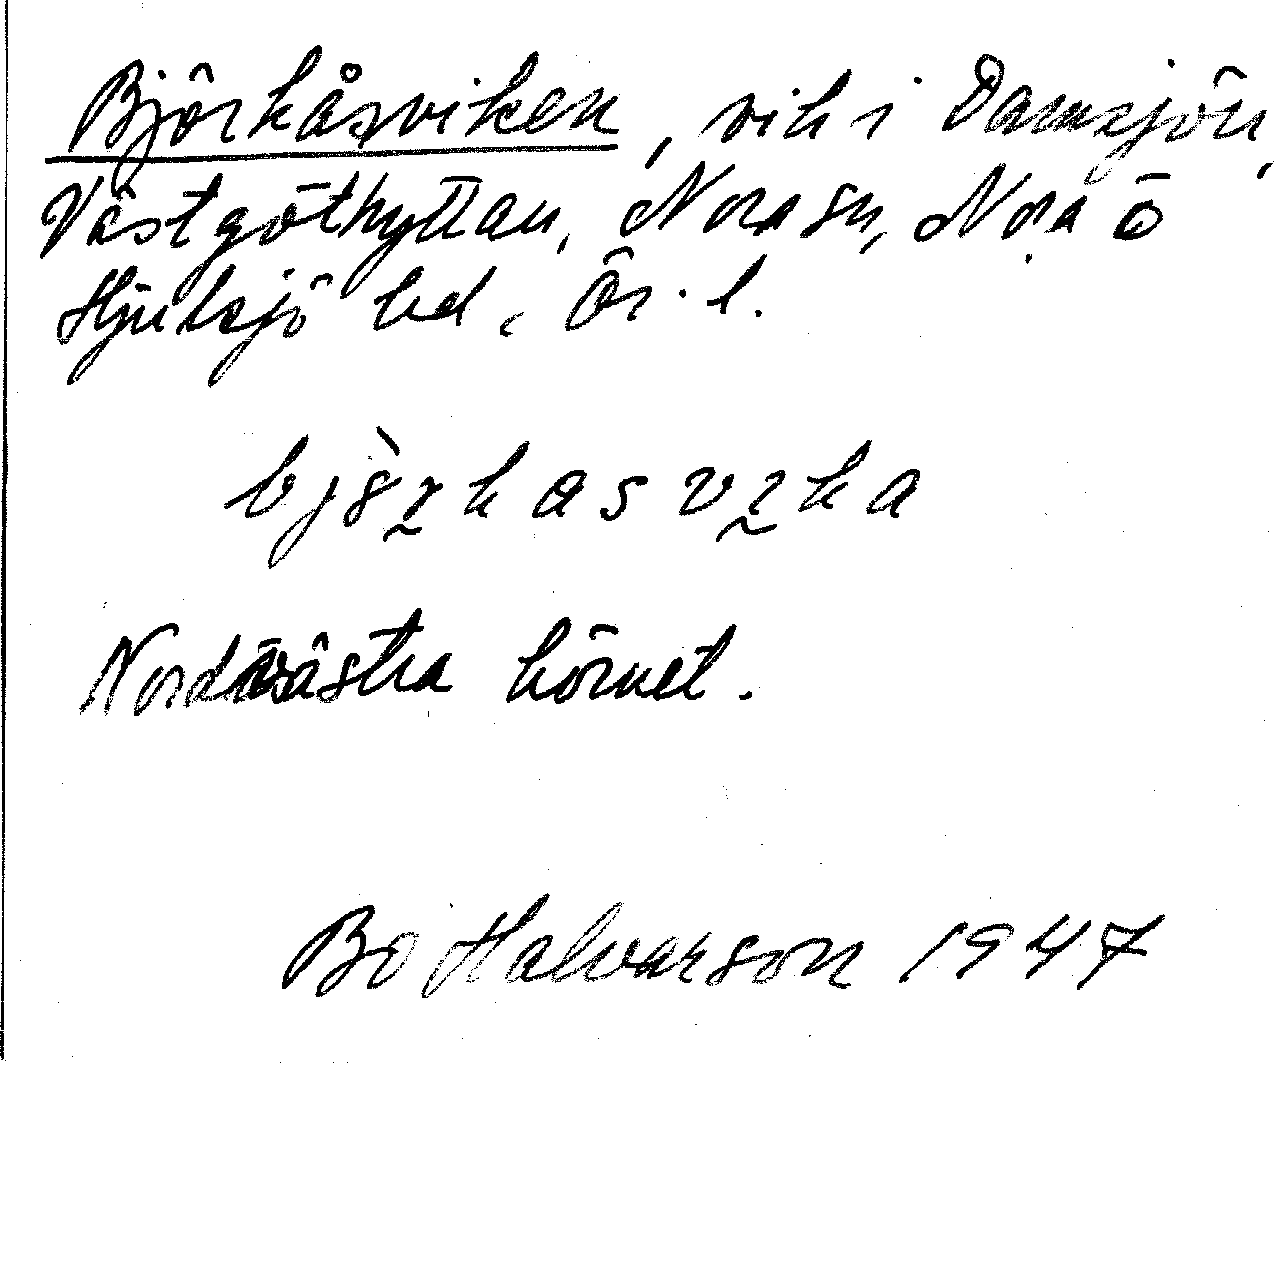 Björkåsviken, vik i Damsjön,
Västgöthyttan, Nora sn, Nora o
Hjulsjö hd, Ör. l.
Nordvästra hörnet.
Bo Halvarson 1947